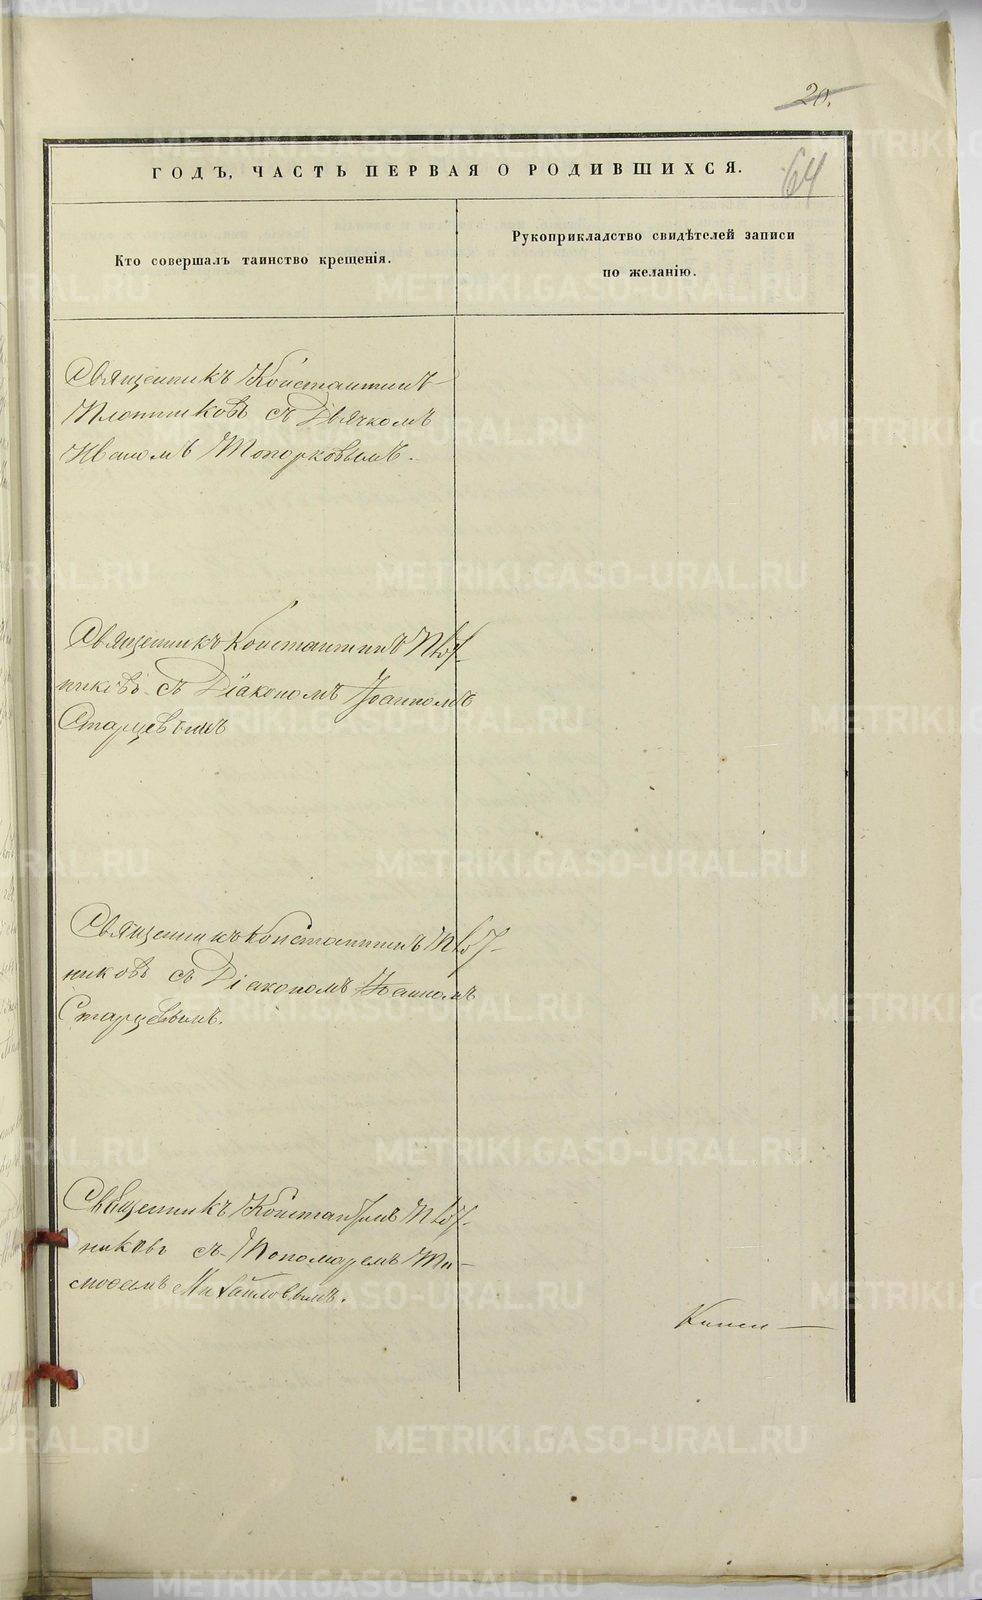 20.
64
ГОДЪ, ЧАСТЬ ПЕРВАЯ О РОДИВШИХСЯ.
Кто совершалъ таинство крещенія.
Рукоприкладство свидѣтелей записи
по желанію.
Священникъ Константинъ
Плотниковъ съ Дьячкомъ
Иваномъ Топорковымъ.
Священникъ Константинъ Плот-
никовъ съ Діакономъ Іоанномъ
Старцевымъ
Священникъ Константинъ Плот-
никовъ съ Діакономъ Іоанномъ
Старцевымъ.
Священникъ Константинъ Плот-
никовъ съ Пономаремъ Ти-
мофеемъ Михайловымъ.
METRIKI.GASO-URAL.RU